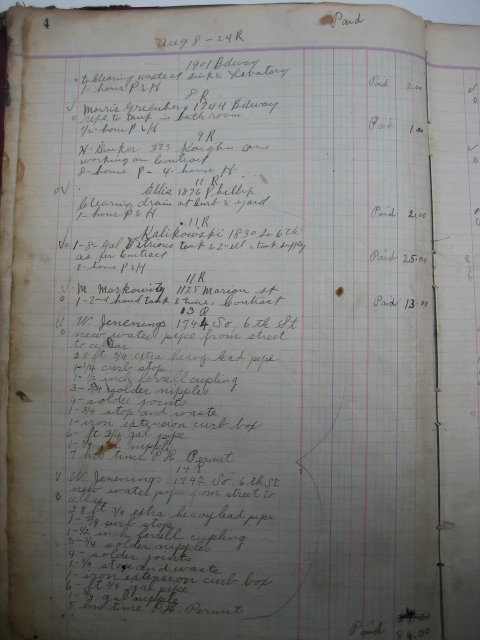 4
Paid
Aug 8 - 24 R
1901 Bdway
to Clearing waste at sink & Lavatory
1 hour P & H Paid 2.00
8 R
Morris Greenberg 1744 Bdway
reps to tank in bath room
1/2 hour P & H Paid 1.00
9 R
323 Kaighn ave
working on Contract
8-hours P - 4 hours H
11 R
Ellis 1876 Phillip
Clearing drain at Hunt & yard
1-hour P & H Paid 2.00
11 R
Kalikowski 1830 So 6th
1-8- gal Vitrious tank & 2 ell & tank supply
as per Contract Paid 25.00
2-hours P & H
11 R
M Markowitz 1125 Marion st
1-2nd hand tank & time Contract Paid 13.00
13 R
W. Jenenings 1744 So 6th St
new water pipe from street
to cellar
28 ft 3/4 extra heavy lead pipe
1-3/4 curb stop
1-1/2 inch ferrell cupling
3-3/4 solder nipples
4- solder joints
1-3/4 stop and waste
1-iron extension curb box
6- ft 3/4 gal pipe
1-3/4 gal nipple
7 hrs time P.H. Permet
14 R
W. Jenenings 1742 So 6th St
new water pipe from street to
cellar
28 ft 3/4 extra heavy lead pipe
1-3/4 curb stop
1-1/2 inch ferrell cupling
3-3/4 solder nipples
4- solder joints
1-3/4 stop and waste
1-iron extension curb box
6- ft 3/4 gal pipe
1-3/4 gal nipple
5 hrs time P.H. Permet
Paid